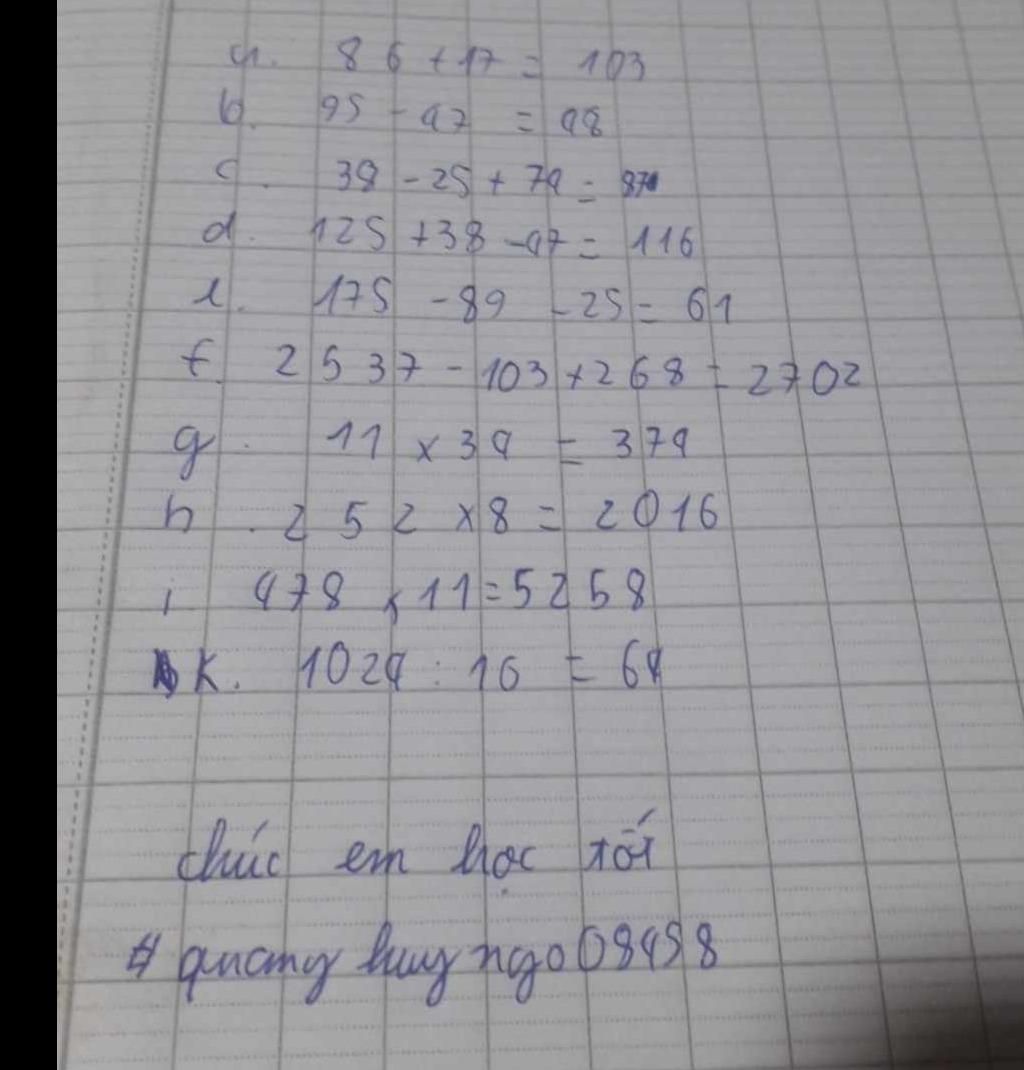 a. 86 + 17 = 103
b. 95 - 47 = 48
c. 38 - 25 + 74 = 87
d. 125 + 38 - 47 = 116
e. 175 - 89 - 25 = 61
f. 2537 - 103 + 268 = 2702
g. 11 x 34 = 374
h. 252 x 8 = 2016
i 478 x 11 = 5258
k. 1024 : 16 = 64
chúc em học tốt
# quang huy ngo 08458